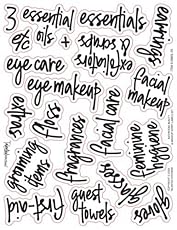 3 essential essentials
e/c oils + & soaps earrings
eye care exfoliators
extras eye makeup facial makeup
floss fragrances facial care
grooming items
feminine hygiene
glasses
gloves
first-aid guest towels